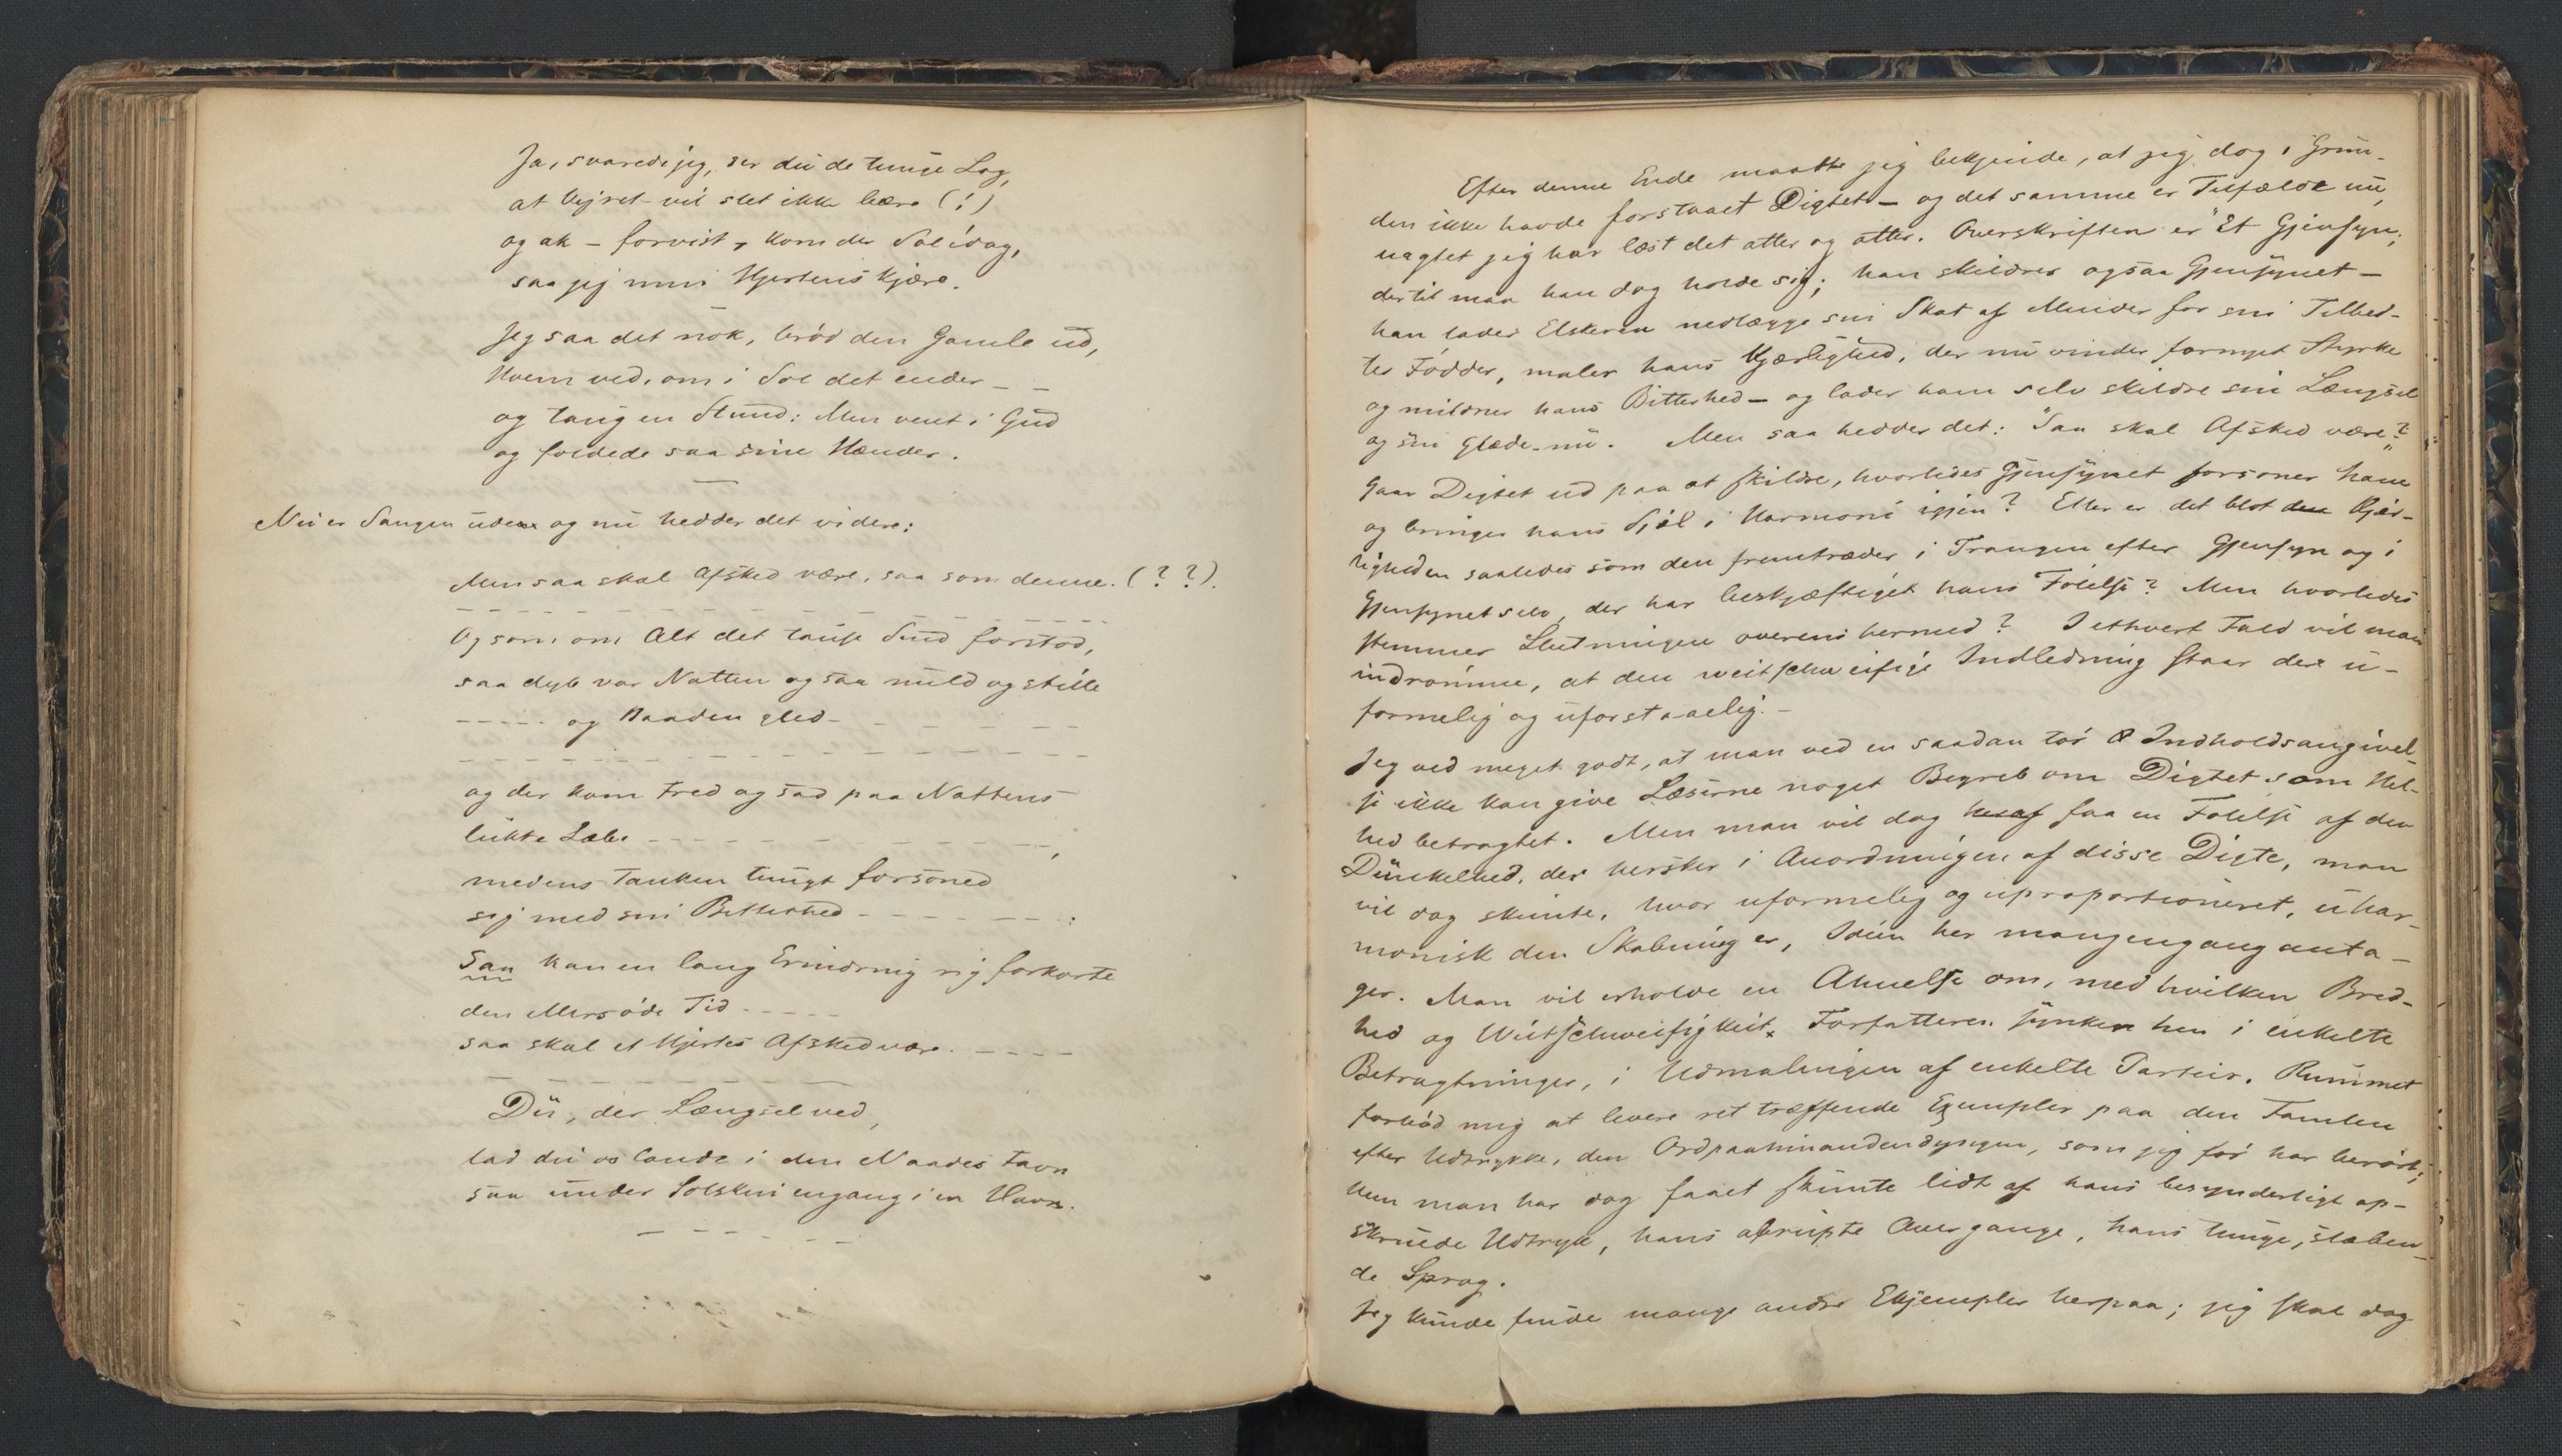 Ja, svarede jeg, ser du de tunge Lag,
at Vejret vil slet ikke bære (!)
og ak – forvist, kom der Sol idag,
saa jeg min Hjertens kjære.
Jeg saa det nok, brød den Gamle ud,
Hvem ved, om i Sol det ender – –
og taug en Stund: Men vent i Gud
og foldede saa sine Hænder.
Nu er Sangen ude og nu hedder det videre:
Men saa skal Afsked være, saa som denne. (??).
Og som om Alt det tause Sind forstod,
saa dyb var Natten og saa mild og stille
– – – – – og Baaden gled – – – – –
og der kom Fred og sad paa Nattens
lukte Læbe – – – – – – – – –,
medens Tanken tungt forsoned
sig med sin Bitterhed – – – – – – – :
Saa kan en lang Erindring sig forkorte
den Mersøde Tid – – – – –
saa skal et Hjertes Afsked være. – – – –
Du, der Længsel ved,
lad du os lande i den Naades Favn
saa under Solskin engang i en Havn.
Efter denne Ende maatte jeg bekjende, at jeg dog i Grun-
den ikke havde forstaaet Digtet – og det samme er Tilfælde nu,
uagtet jeg har læst det atter og atter. Overskriften er "Et Gjensyn;
dertil maa han dog holde sig; han skildrer ogsaa Gjensynet –
han lader Elskeren nedlægge sin Skat af Minder for sin Tilbed-
tes Fødder, maler hans Kjærlighed, der nu vinder fornyet Styrke
og mildner hans Bitterhed – og lader ham selv skildre sin Længsel
og sin Glæde nu. Men saa hedder det: "Saa skal Afsked være"?
Gaar Digtet ud paa at skildre, hvorledes Gjensynet forsoner ham
og bringer hans Sjæl i Harmoni igjen? Eller er det blot den Kjær-
ligheden saaledes som den fremtræder i Trangen efter Gjensyn og i
Gjensynet selv, der har beskjæftiget hans Følelse? Men hvorledes
stemmer Slutningen overens hermed? I ethvert Fald vil man
indrømme, at den weitschweifige Indledning staar der u-
formelig og uforstaaelig. –
Jeg ved meget godt, at man ved en saadan tør Indholdsangivel-
se ikke kan give Læserne noget Begreb om Digtet som Hel-
hed betragtet. Men man vil dog heraf faa en Følelse af den
Dunkelhed, der hersker i Anordningen af disse Digte, man
vil dog skimte, hvor uformelig og uproportioneret, uhar-
monisk den Skabning er, Ideen her mangengang anta-
ger. Man vil erholde en Ahnelse om, med hvilken Bred-
hed og Weitschweifigkeit Forfatteren synker hen i enkelte
Betragtninger, i Udmalingen af enkelte Partier. Rummet
forbød mig at levere ret træffende Exempler paa den Famlen
efter Udtrykke, den Ordpaahinandendyngen, som jeg før har berørt;
Men man har dog faaet skimte lidt af hans besynderligt op-
skruede Udtryk, hans abrupte Overgange, hans tunge, slæben-
de Sprog.
Jeg kunde finde mange andre Exjempler herpaa; jeg skal dog